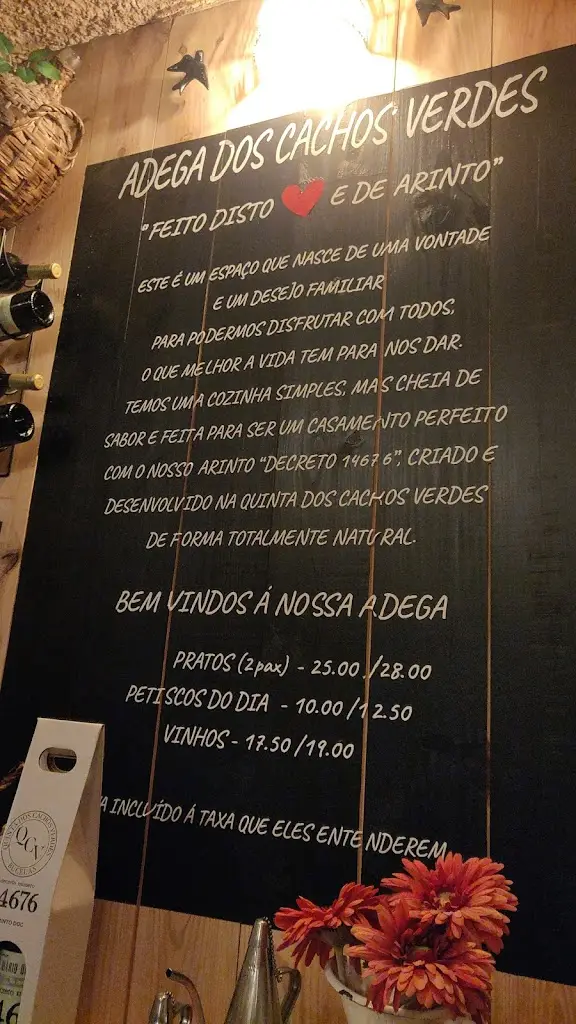 ADEGA DOS CACHOS VERDES
"FEITO DISTO ❤ E DE ARINTO"
ESTE É UM ESPAÇO QUE NASCE DE UMA VONTADE
E UM DESEJO FAMILIAR
PARA PODERMOS DISFRUTAR COM TODOS,
O QUE MELHOR A VIDA TEM PARA NOS DAR.
TEMOS UMA COZINHA SIMPLES, MAS CHEIA DE
SABOR E FEITA PARA SER UM CASAMENTO PERFEITO
COM O NOSSO ARINTO "DECRETO 14676", CRIADO E
DESENVOLVIDO NA QUINTA DOS CACHOS VERDES
DE FORMA TOTALMENTE NATURAL.
BEM VINDOS Á NOSSA ADEGA
PRATOS (2pax) - 25.00 /28.00
PETISCOS DO DIA - 10.00 /12.50
VINHOS - 17.50 /19.00
A INCLUÍDO Á TAXA QUE ELES ENTENDEREM
QUINTA DOS CACHOS VERDES
QCV
BUCELAS
4676